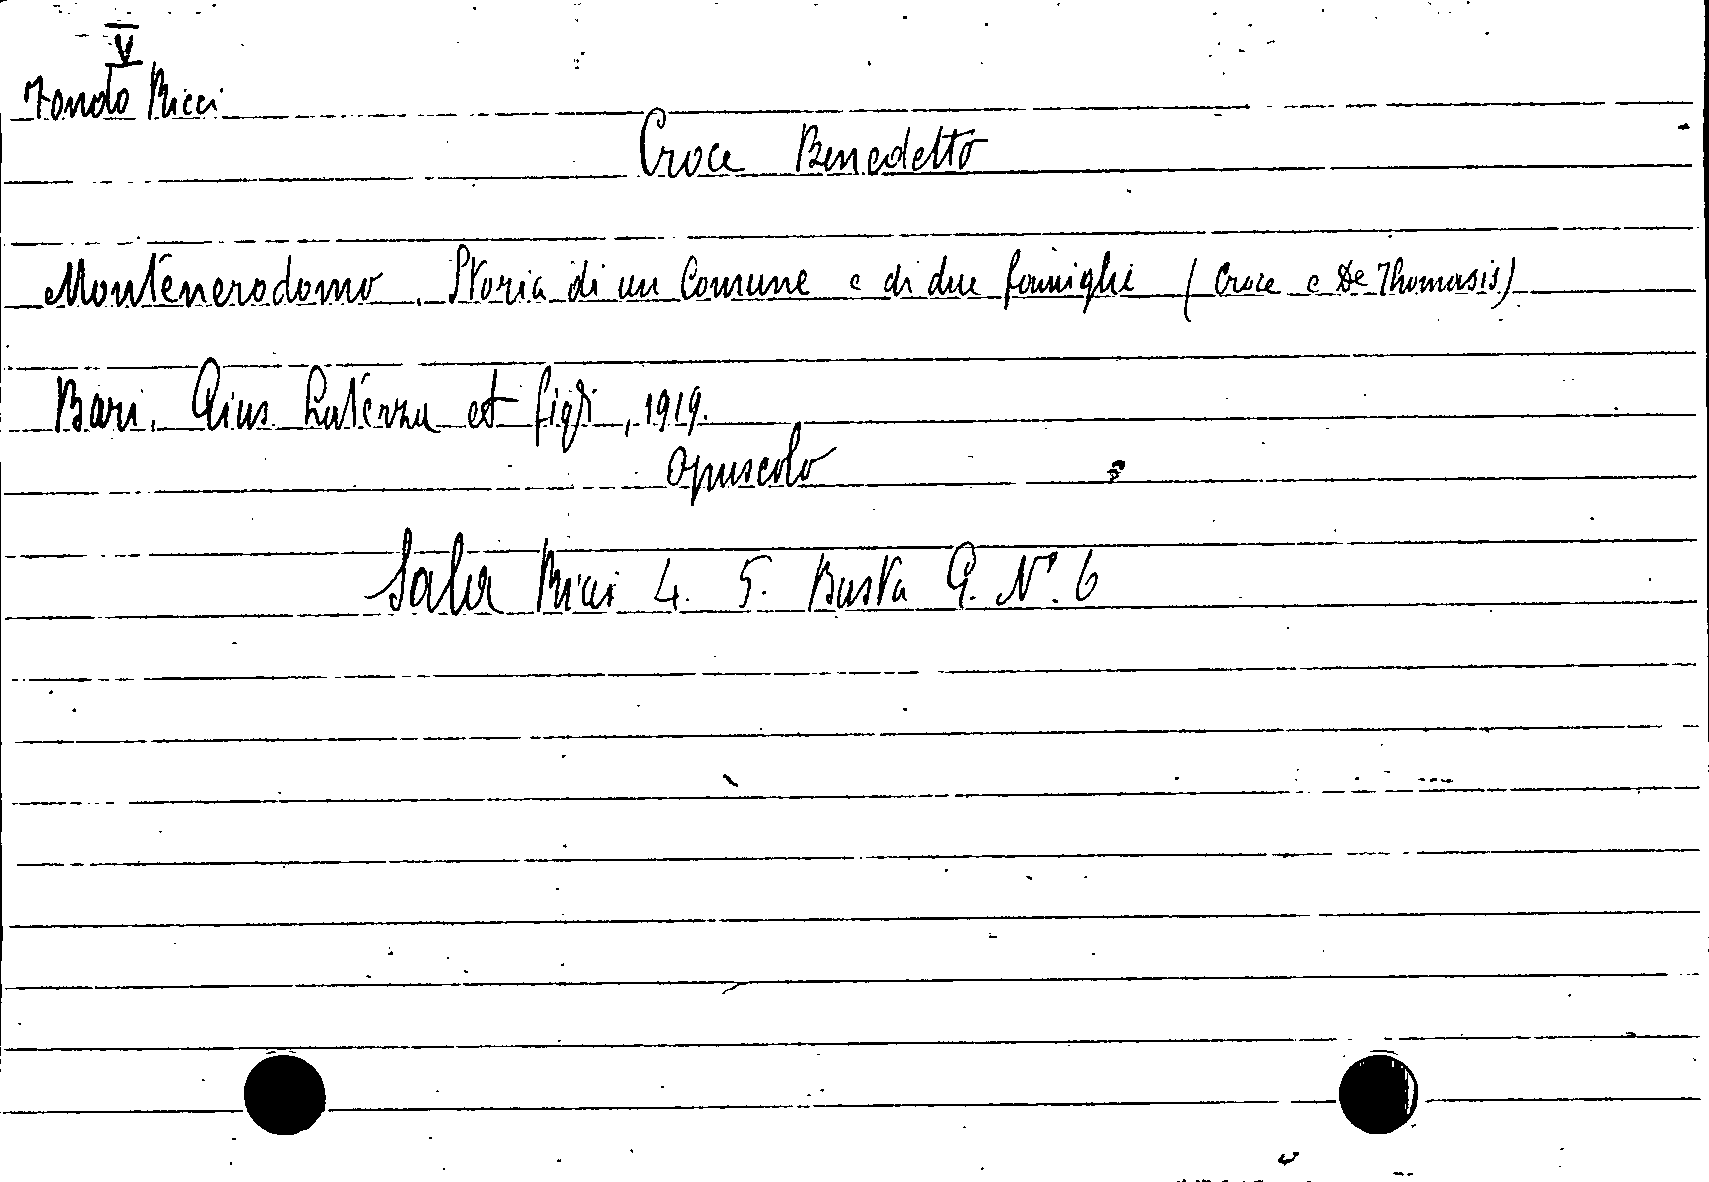 V
Fondo Ricci
Croce Benedetto
Montenerodomo. Storia di un Comune e di due famiglie (Croce e De Thomasis)
Bari, Gius Laterza et figli, 1919.
opuscolo
Sala Ricci 4. 5. Busta G. N° 6